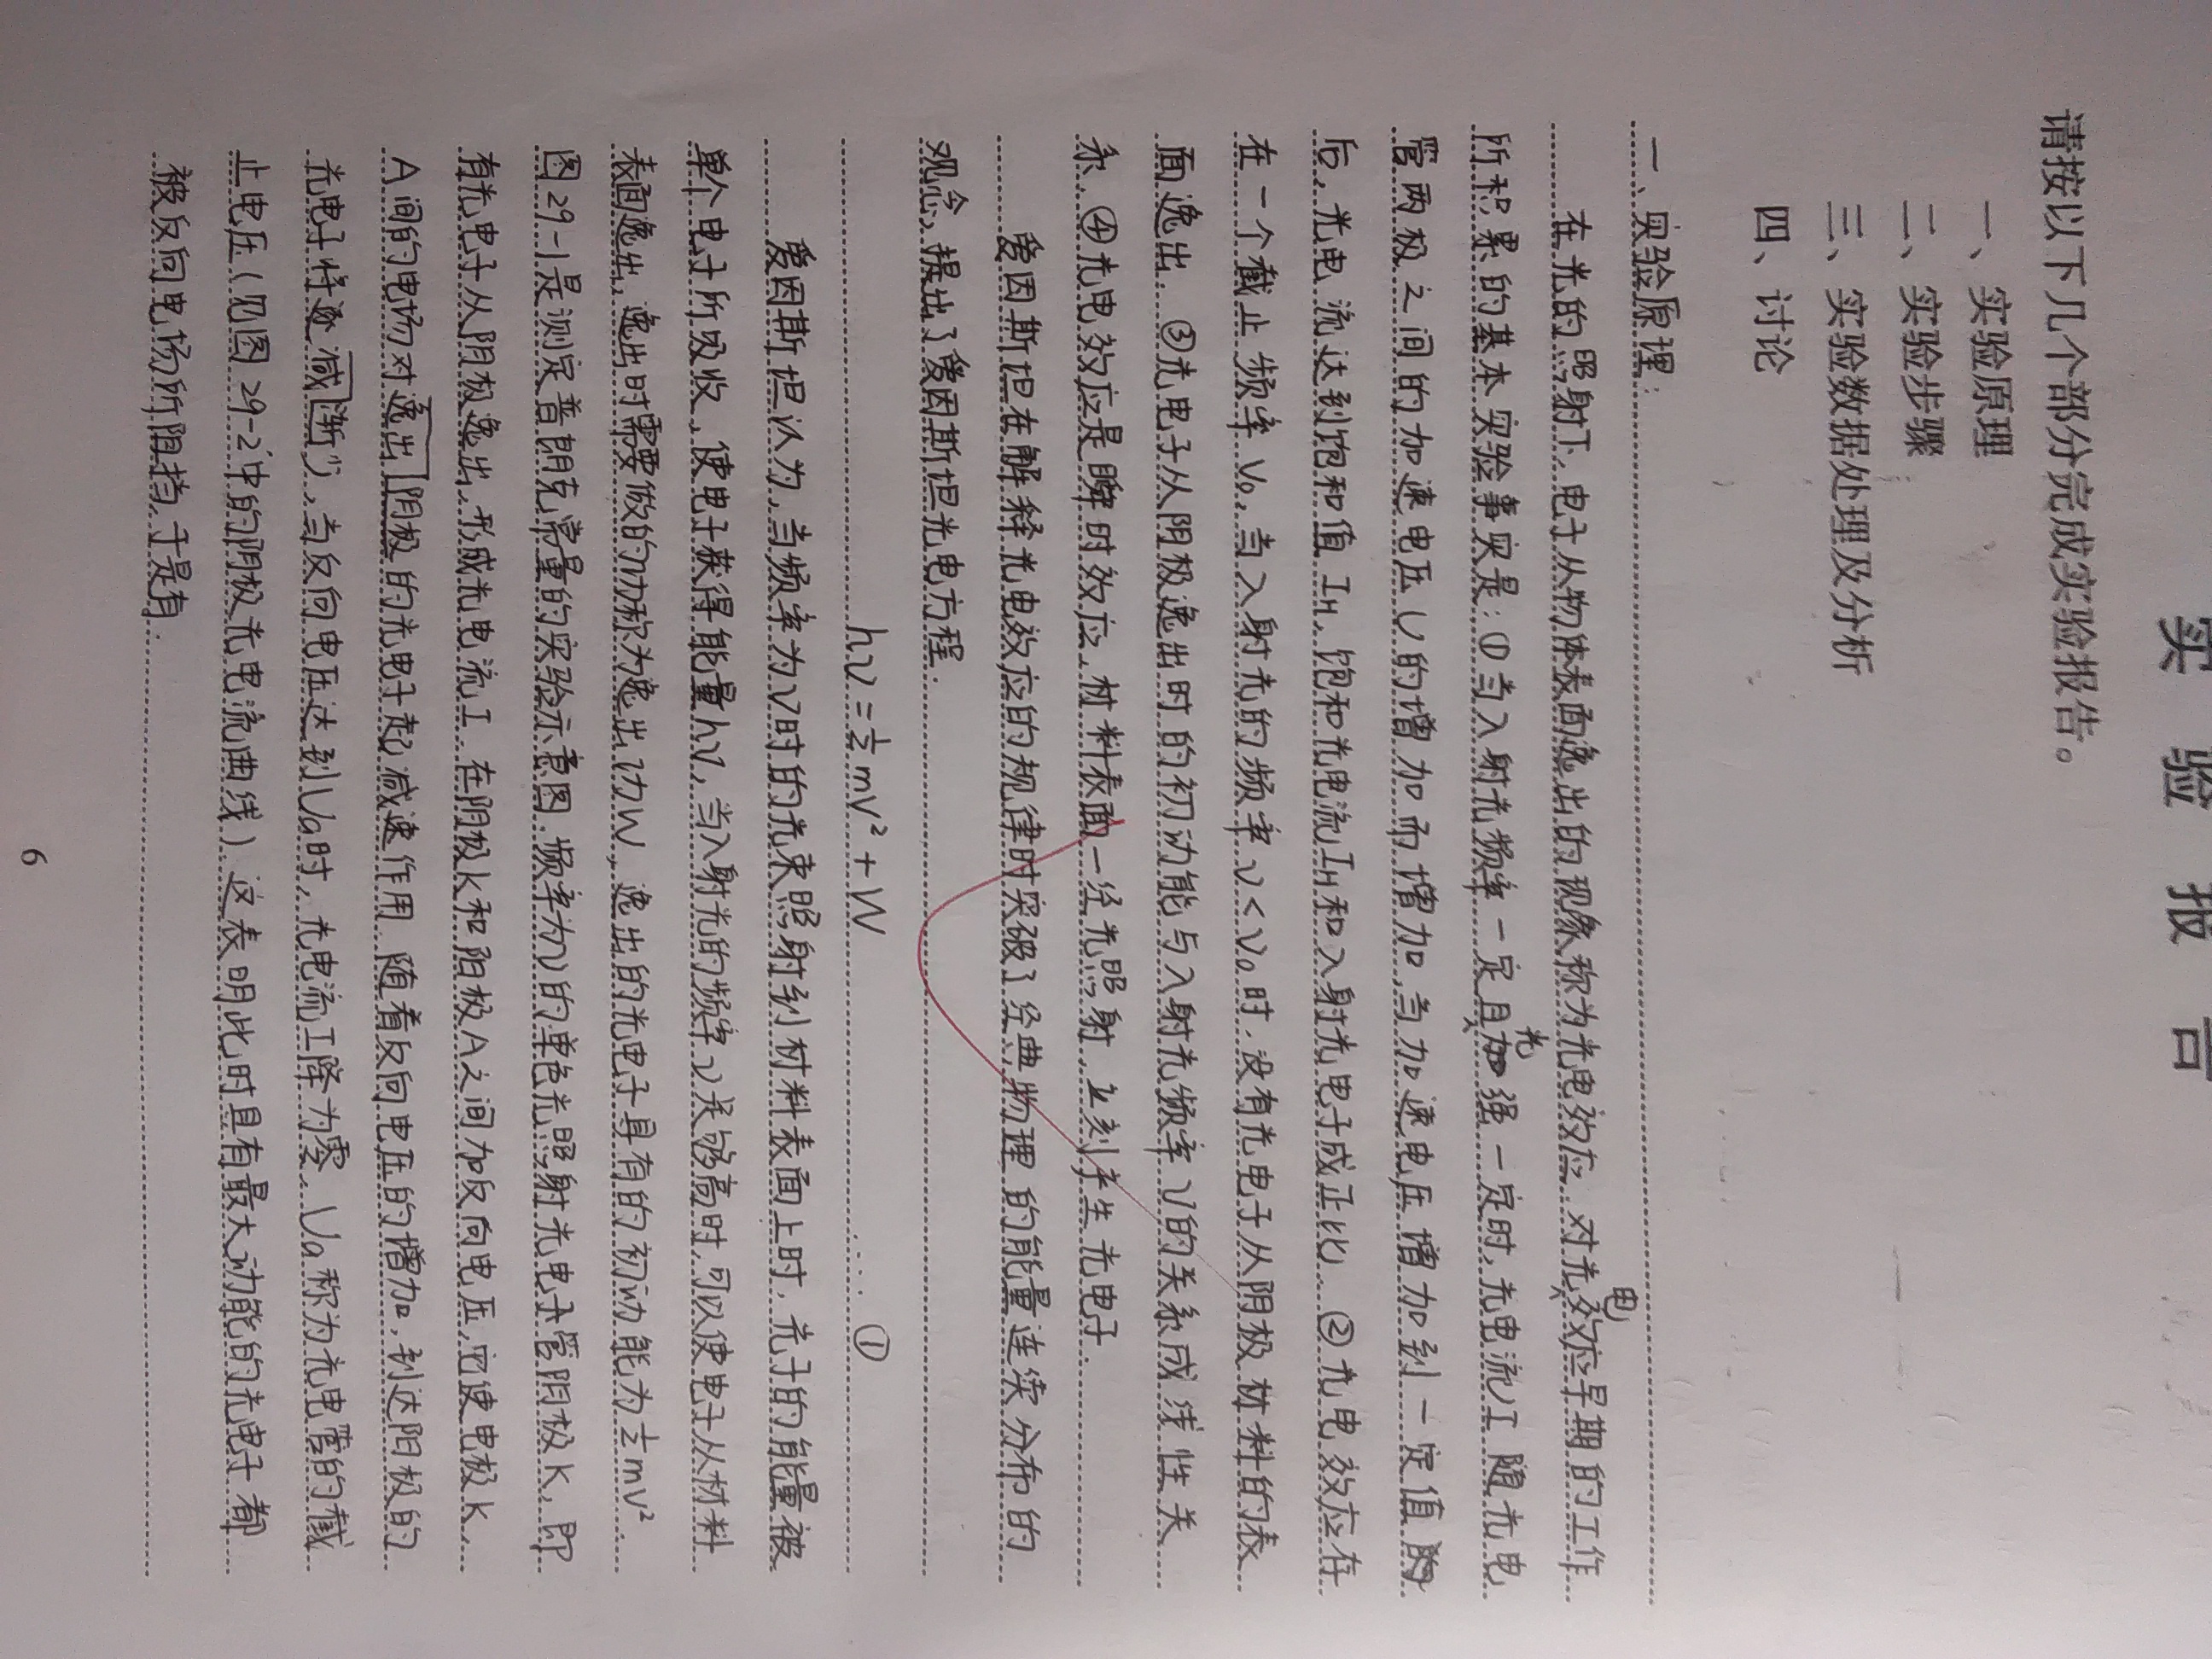 实验报告
请按以下几个部分完成实验报告。
一、实验原理
二、实验步骤
三、实验数据处理及分析
四、讨论
一、实验原理:
在光的照射下,电子从物体表面逸出的现象称为光电效应.对光电效应早期的工作
所积累的基本实验事实是:①当入射光频率一定且光强一定时,光电流I随光电
管两极之间的加速电压U的增加而增加,当加速电压增加到一定值
后,光电流达到饱和值IH,饱和光电流IH和入射光电子成正比.②光电效应存
在一个截止频率ν₀,当入射光的频率ν<ν₀时,没有光电子从阴极材料的表
面逸出.③光电子从阴极逸出时的初动能与入射光频率ν的关系成线性关
系.④光电效应是瞬时效应,材料表面一经光照射立刻产生光电子.
爱因斯坦在解释光电效应的规律时突破了经典物理的能量连续分布的
观念,提出了爱因斯坦光电方程.
hν=½mv²+W ……①
爱因斯坦认为,当频率为ν时的光束照射到材料表面上时,光子的能量被
单个电子所吸收,使电子获得能量hν,当入射光的频率ν足够高时,可以使电子从材料
表面逸出,逸出时需要做的功称为逸出功W,逸出的光电子具有的初动能为½mv².
图29-1是测定普朗克常量的实验示意图.频率为ν的单色光照射光电子管阴极K,即
有光电子从阴极逸出,形成光电流I.在阴极K和阳极A之间加反向电压,它使电极K、
A间的电场对逸出阴极的光电子起减速作用.随着反向电压的增加,到达阳极的
光电子将逐减渐少,当反向电压达到Ua时,光电流I降为零.Ua称为光电管的截
止电压(见图29-2中的阴极光电流曲线).这表明此时具有最大动能的光电子都
被反向电场所阻挡,于是有:
6